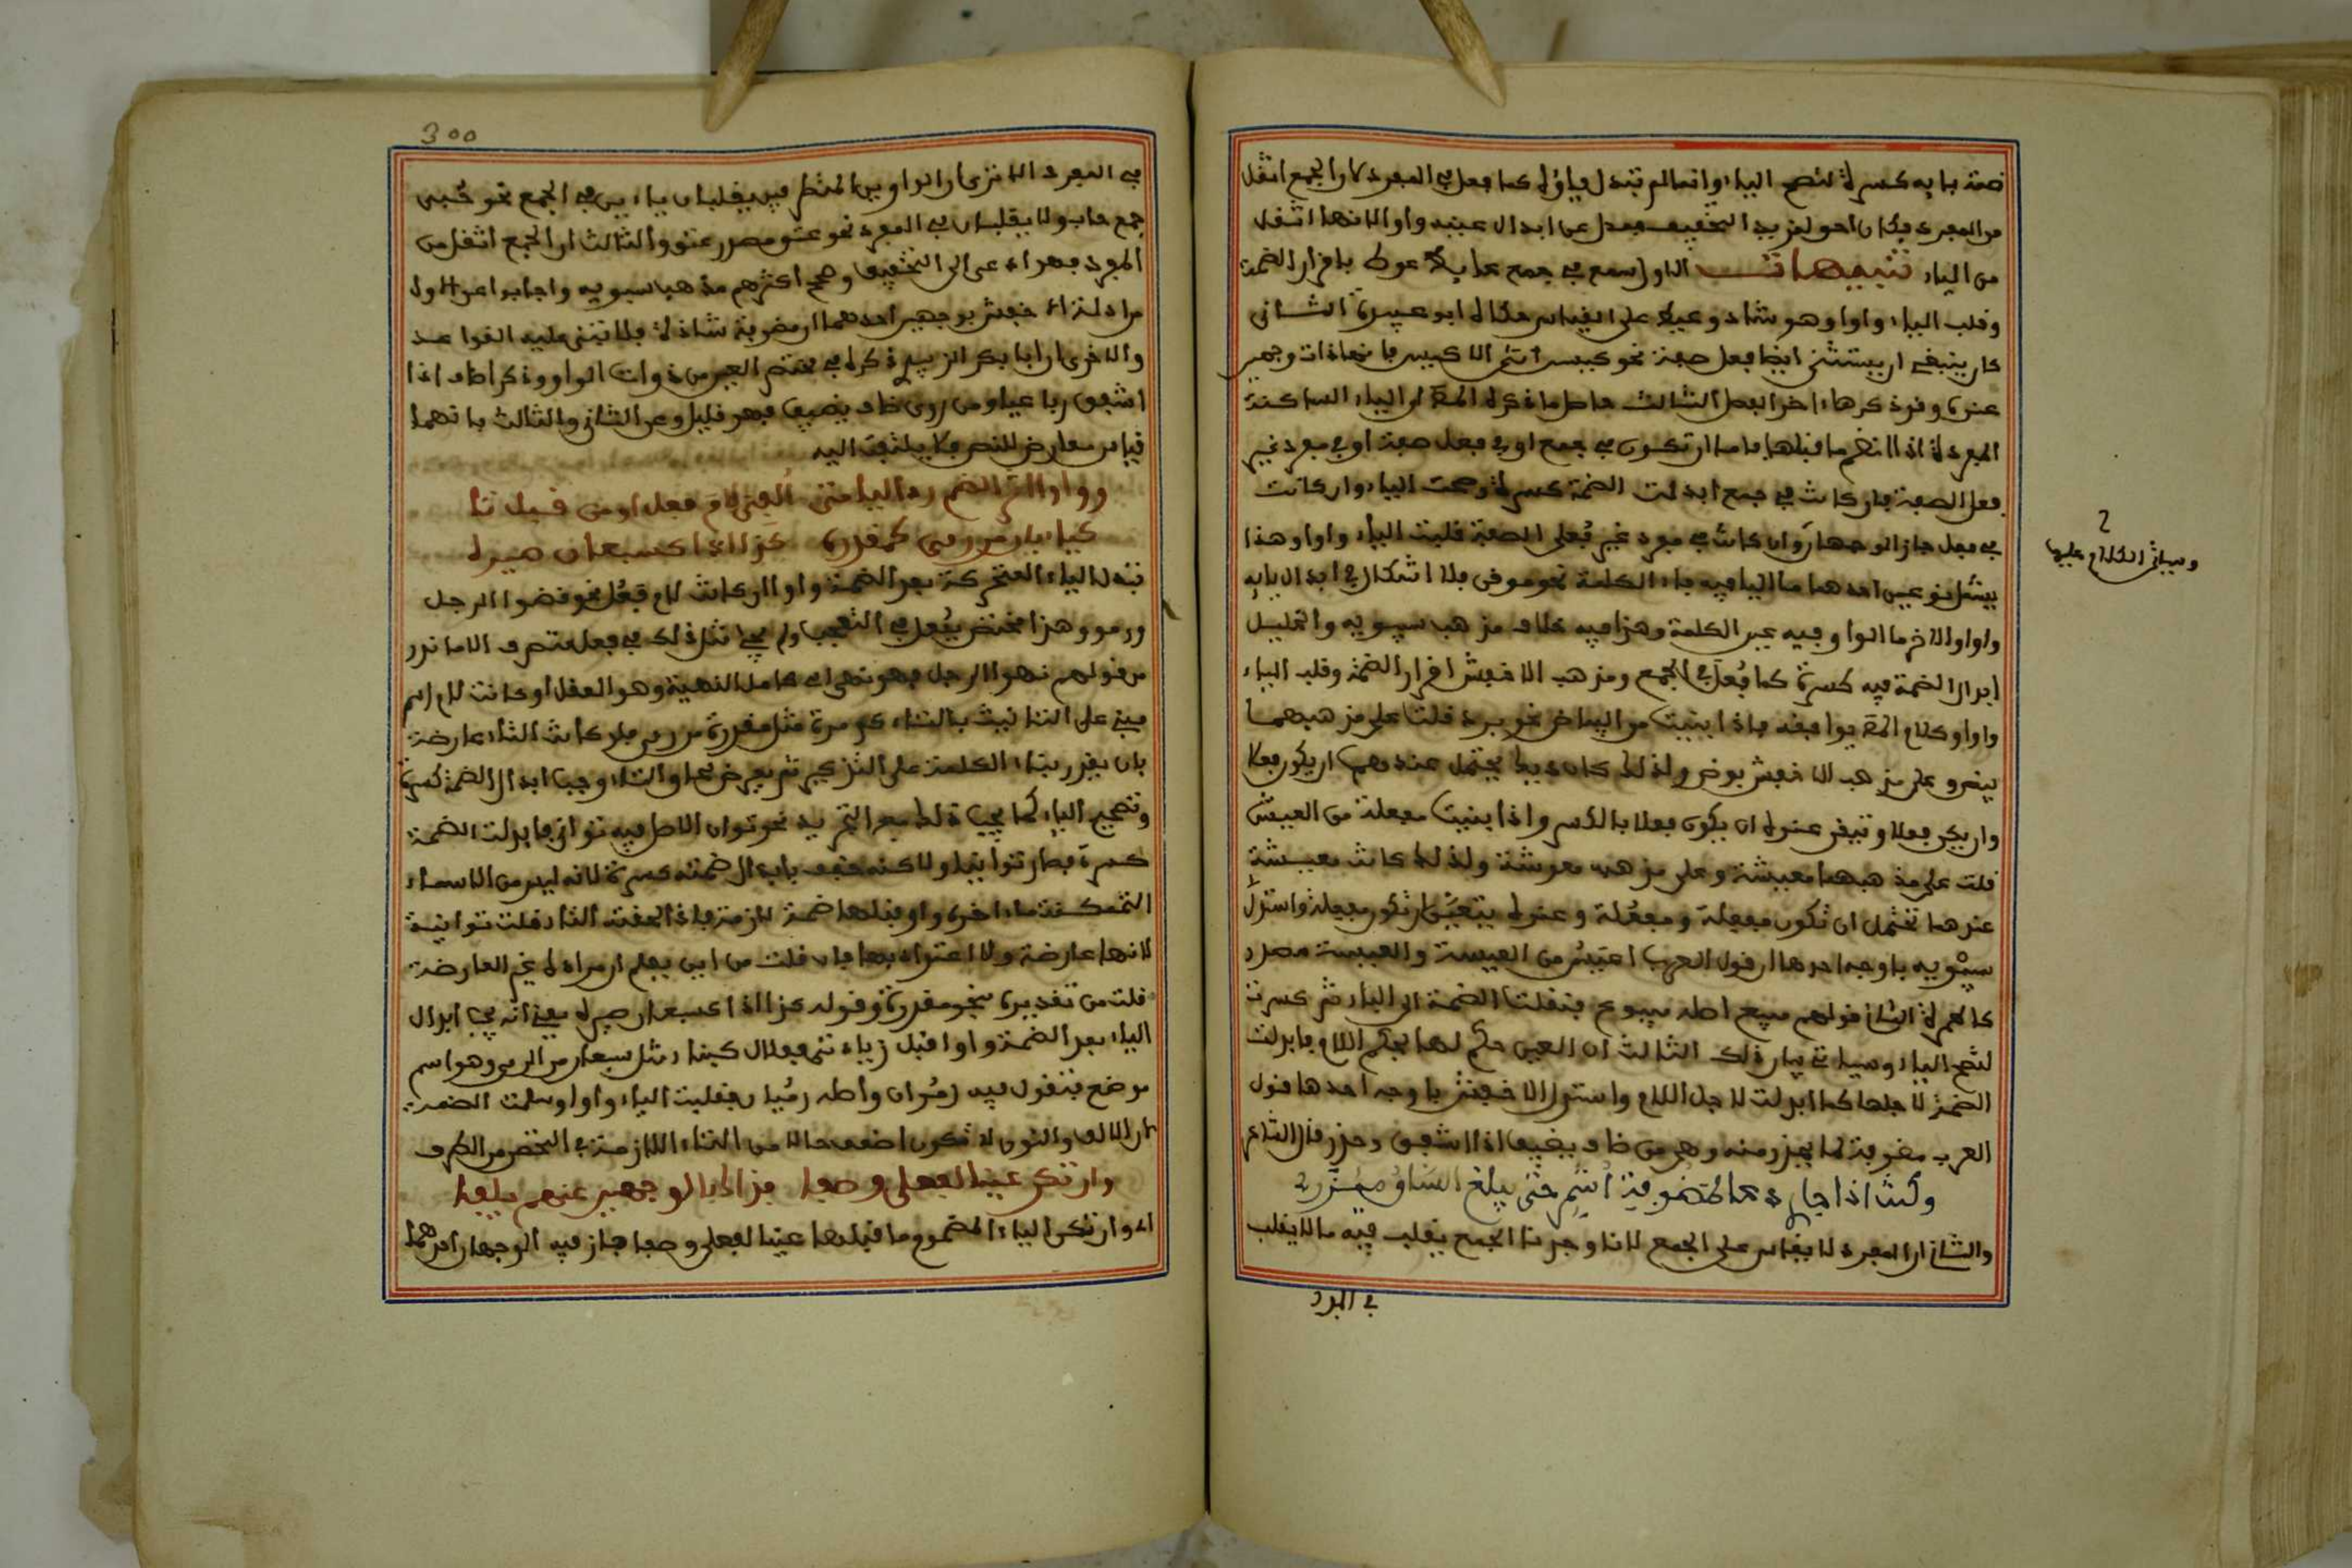 ضمة بابه كسرة لتصح الياء وانما لم تبدل ياؤه كما فعل في المفرد لان الجمع اثقل
من المفرد فكان احق بمزيد التخفيف فعدل عن ابدال عينه واوا لانها اثقل
من الياء تنبيهات الاول سمع في جمع عايط عوط باقرار الضمة
وقلب الياء واوا وهو شاذ وعيط على القياس حكاه ابو عبيدة الثاني
كان ينبغي ان يستثنى ايضا فعلى صفة نحو كيسى انثى الاكيس فانها ذات وجهين
عنده وقد ذكرها اخر الفصل الثالث حاصل ما ذكره المص ان الياء الساكنة
المفردة اذا انضم ما قبلها فاما ان تكون في جمع او في فعلى صفة او في مفرد غير
فعلى الصفة فان كانت في جمع ابدلت الضمة كسرة وصحت الياء وان كانت
في فعلى جاز الوجهان وان كانت في مفرد غير فعلى الصفة قلبت الياء واوا وهذا
يشمل نوعين احدهما ما الياء فيه فاء الكلمة نحو موقن فلا اشكال في ابدال يايه
واوا والاخر ما الواو فيه عين الكلمة وهذا فيه خلاف مذهب سيبويه والخليل
ابدال الضمة فيه كسرة كما فعل في الجمع ومذهب الاخفش اقرار الضمة وقلب الياء
واوا وكلام المص يوافقه فاذا بنيت من البياض نحو برد قلت على مذهبهما
بيض وعلى مذهب الاخفش بوض ولذلك كان ديك يحتمل عندهما ان يكون فعلا
وان يكون فعلا ويتعين عنده ان يكون فعلا بالكسر واذا بنيت مفعلة من العيش
قلت على مذهبهما معيشة وعلى مذهبه معوشة ولذلك كانت معيشة
عندهما تحتمل ان تكون مفعلة ومفعلة وعنده يتعين ان تكون مفعلة واستدل
سيبويه باوجه احدها ان قول العرب اعيس من العيسة والعيسة مصدر
كالحمرة الثاني قولهم مبيع اصله مبيوع فنقلت الضمة الى الباء ثم كسرت
لتصح الياء وسياتي بيان ذلك الثالث ان العين حكم لها بحكم اللام فابدلت
الضمة لاجلها كما ابدلت لاجل اللام واستدل الاخفش باوجه احدها قول
العرب مضوفة لما يحذر منه وهي من ضاف يضيف اذا اشفق وحذر قال الشاعر
وكنت اذا جاري دعا لمضوفة اشمر حتى يبلغ الساق ميزري
والثاني ان المفرد لا يقاس على الجمع لانا وجدنا الجمع يقلب فيه ما لا يقلب
في المفرد
وسياتي الكلام عليها
300
في المفرد الا ترى ان الواوين المتطرفين يقلبان ياءين في الجمع نحو عتي
جمع عات ولا يقلبان في المفرد نحو عتو مصدر عتو والثالث ان الجمع اثقل من
المفرد فهو ادعى الى التخفيف وصحح اكثرهم مذهب سيبويه واجابوا عن الاول
من ادلة الاخفش بوجهين احدهما ان مضوفة شاذة فلا تبنى عليه القواعد
والاخرى ان ابا بكر الزبيدي ذكره في مختصر العين من ذوات الواو وذكر اضاف اذا
اشفق رباعيا ومن روى ضاف يضيف فهو قليل وعن الثاني والثالث بانهما
قياس معارض للنص فلا يلتفت اليه
وواوا اثر الضم رد اليا متى الفي لام فعل او من قبل تا
كتاء بان من رمى كمقدرة كذا اذا كسبعان صيره
تبدل الياء المتحركة بعد الضمة واوا ان كانت لام فعل نحو قضو الرجل
ورمو وهذا مختص بفعل في التعجب ولم يجئ مثل ذلك في فعل متصرف الا ما ندر
من قولهم نهو الرجل فهو نهي اي كامل النهية وهو العقل او كانت لام اسم
مبني على التانيث بالتاء كمرموة مثل مقدرة من رمى فلو كانت التاء عارضة
بان يقدر بناء الكلمة على التذكير ثم يعرض لحاق التاء وجب ابدال الضمة كسرة
وتصحيح الياء كما يجب ذلك مع التجريد نحو توان الاصل فيه تواني فابدلت الضمة
كسرة فصار توانيا ولاكنه خفف بابدال ضمته كسرة لانه ليس من الاسماء
المتمكنة ما اخره واو قبلها ضمة لازمة فاذا الحقت التاء قلت توانية
لانها عارضة ولا اعتداد بها فان قلت من اين يعلم ان مراده غير العارضة
قلت من تقديره بنحو مقدرة وقوله كذا اذا كسبعان صيره يعني انه يجب ابدال
الياء بعد الضمة واوا قبل زيادتي فعلان كبناء مثل سبعان من الرمي وهو اسم
موضع فتقول فيه رموان واصله رميان فقلبت الياء واوا وسلمت الضمة
لان الالف والنون لا تكون اضعف حالا من التاء اللازمة في التحصن من الطرف
وان تكن عينا لفعلى وصفا فذاك بالوجهين عنهم يلفى
اي وان تكن الياء المضموم ما قبلها عينا لفعلى وصفا جاز فيه الوجهان احدهما